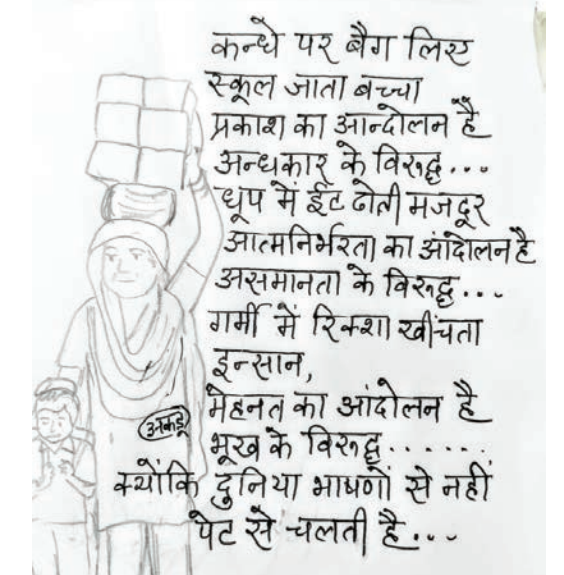 कन्धे पर बैग लिए
स्कूल जाता बच्चा
प्रकाश का आन्दोलन है
अन्धकार के विरुद्ध...
धूप में ईंट ढोती मजदूर
आत्मनिर्भरता का आंदोलन है
असमानता के विरुद्ध...
गर्मी में रिक्शा खींचता
इन्सान,
मेहनत का आंदोलन है
भूख के विरुद्ध......
क्योंकि दुनिया भाषणों से नहीं
पेट से चलती है...